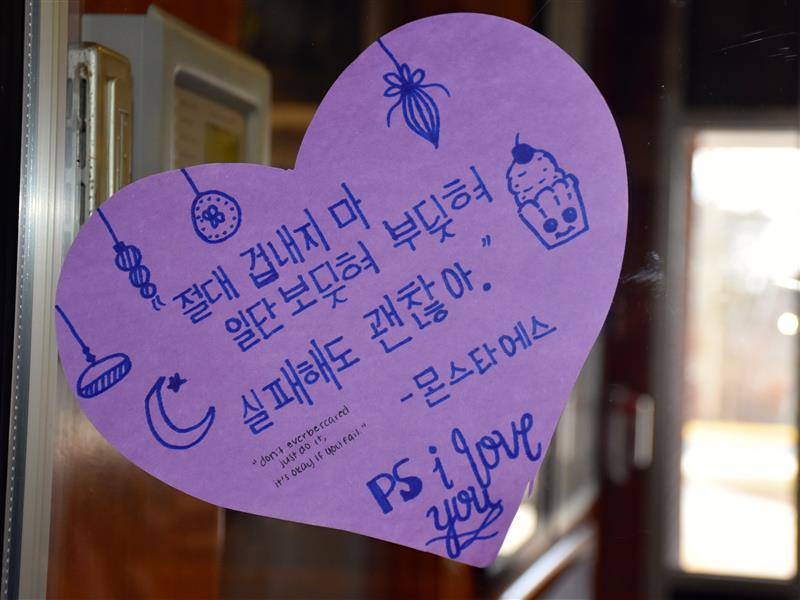 "절대 겁내지 마
일단 보딪혀 부딪혀"
실패해도 괜찮아.
-몬스타에스
"don't ever bercared
just do it,
it's okay if you fail"
PS i love
you